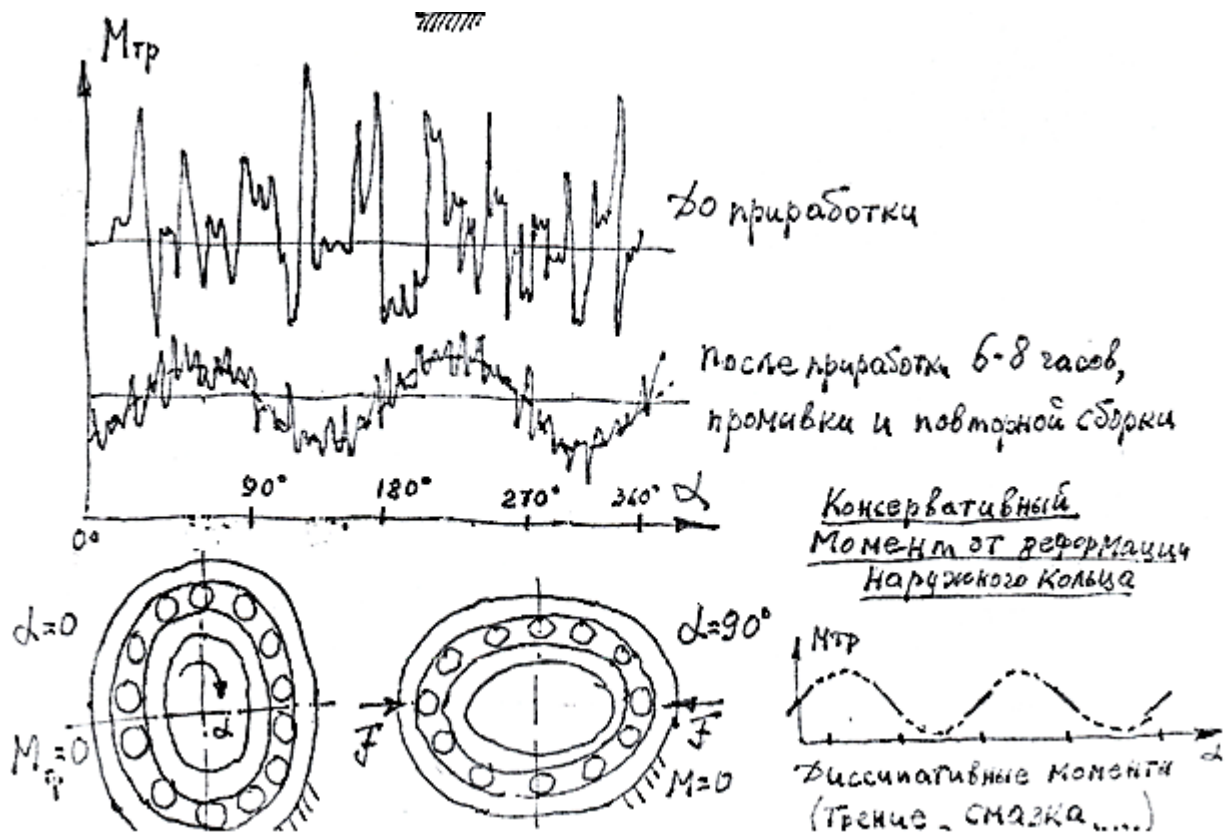 Mтр
До приработки
После приработки 6-8 часов,
промивки и повторной сборки
0° 90° 180° 270° 360° α
Консервативный
Момент от деформации
наружного кольца
α=0
Mтр=0
α
F
α=90°
F
M=0
Mтр
α
Диссипативные моменты
(Трение, смазка,....)